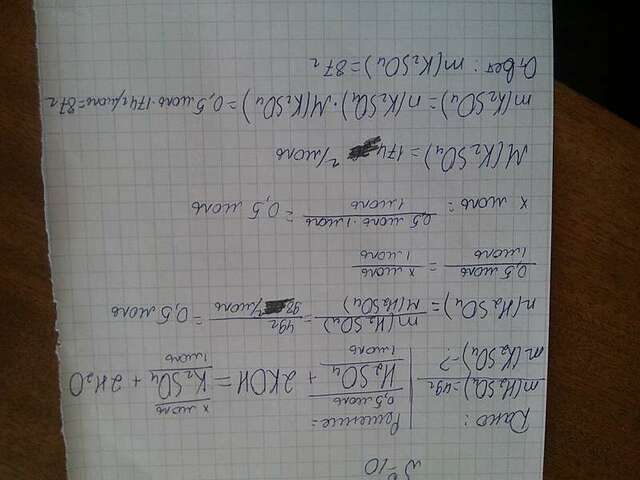 №10
Дано:
m(H₂SO₄)=49г
m(K₂SO₄)-?
Решение:
0,5 моль x моль
H₂SO₄ + 2KOH = K₂SO₄ + 2H₂O
1 моль 1 моль
n(H₂SO₄)= m(H₂SO₄)/M(H₂SO₄) = 49г/98 г/моль = 0,5 моль
0,5 моль/1 моль = x моль/1 моль
x моль = 0,5 моль · 1 моль/1 моль = 0,5 моль
M(K₂SO₄)=174 г/моль
m(K₂SO₄)=n(K₂SO₄)·M(K₂SO₄)=0,5 моль·174 г/моль=87г
Ответ: m(K₂SO₄)=87г